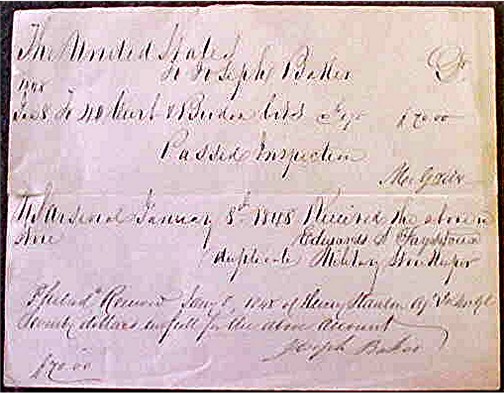 The United States
To Joseph Baker Dr
1848
Jan 8 To 40 Curb & Bridoon bits $70.00
Passed Inspection
US Arsenal January 8th 1848 Received the above in
store
Edwards S. Fayssoux
duplicate Military Storekeeper
Philad. Received Jany 8, 1848 of Henry Stanton
Seventy dollars in full for the above account
Joseph Baker
$70.00